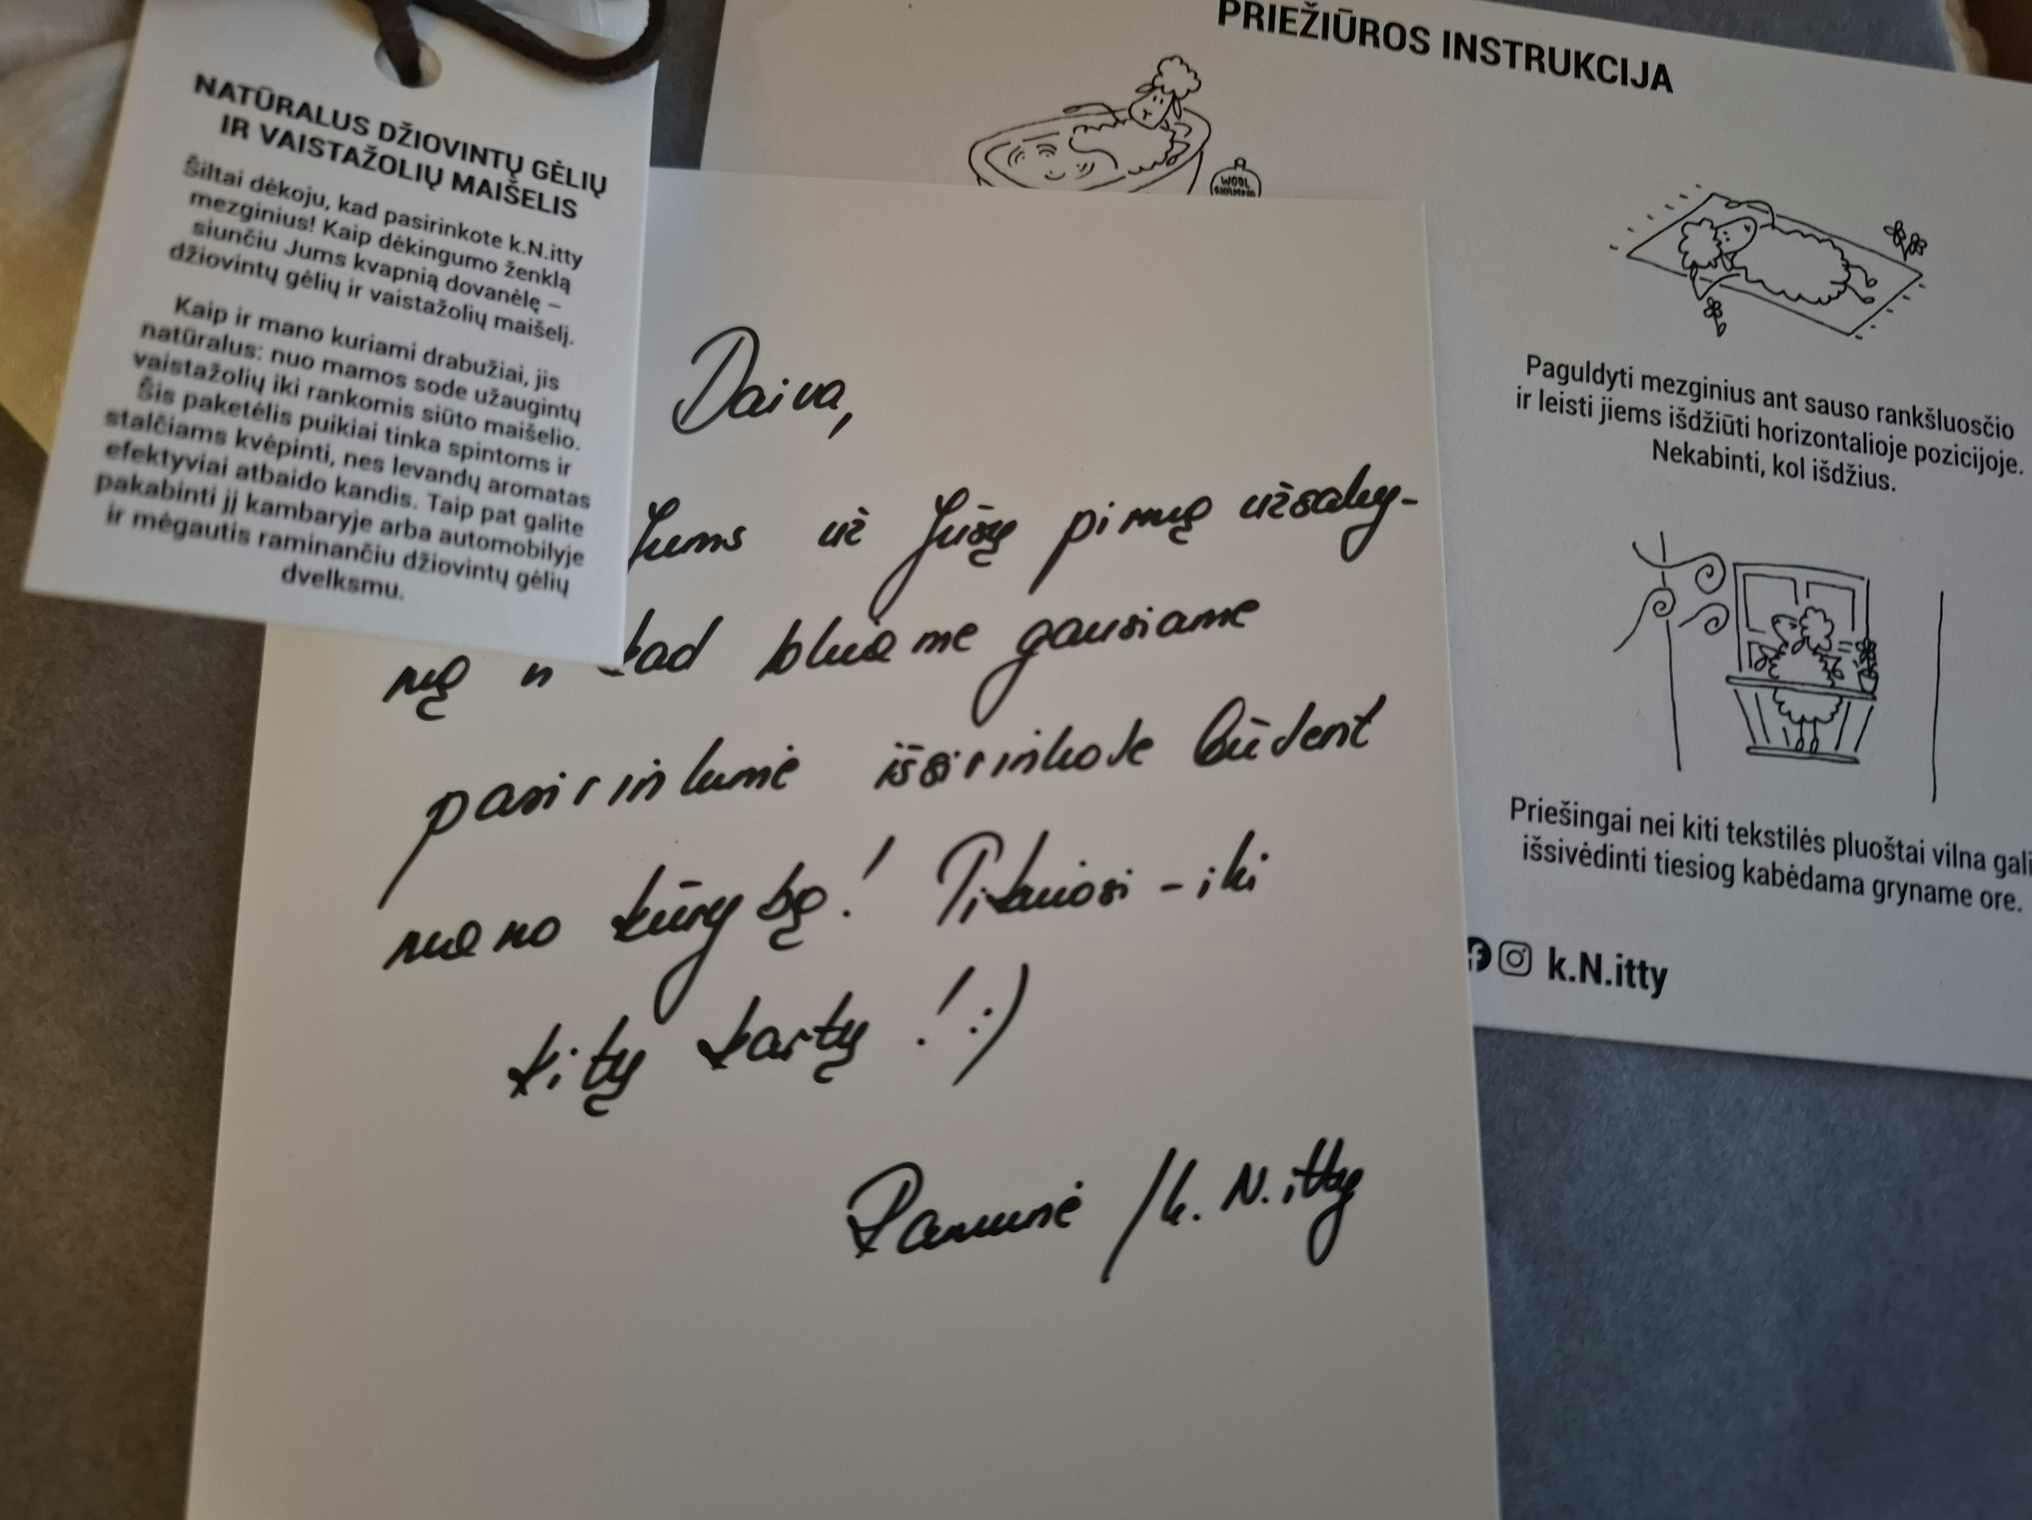 NATŪRALUS DŽIOVINTŲ GĖLIŲ
IR VAISTAŽOLIŲ MAIŠELIS
Šiltai dėkoju, kad pasirinkote k.N.itty
mezginius! Kaip dėkingumo ženklą
siunčiu Jums kvapnią dovanėlę –
džiovintų gėlių ir vaistažolių maišelį.
Kaip ir mano kuriami drabužiai, jis
natūralus: nuo mamos sode užaugintų
vaistažolių iki rankomis siūto maišelio.
Šis paketėlis puikiai tinka spintoms ir
stalčiams kvėpinti, nes levandų aromatas
efektyviai atbaido kandis. Taip pat galite
pakabinti jį kambaryje arba automobilyje
ir mėgautis raminančiu džiovintų gėlių
dvelksmu.
Daiva,
Jums už Jūsų pirmą užsaky-
mą ir kad tokiame gausiame
pasirinkime išsirinkote būtent
mano kūrybą! Tikiuosi - iki
kitų kartų! :)
Ramunė / k.N.itty
PRIEŽIŪROS INSTRUKCIJA
WOOL
SHAMPOO
Paguldyti mezginius ant sauso rankšluosčio
ir leisti jiems išdžiūti horizontalioje pozicijoje.
Nekabinti, kol išdžius.
Priešingai nei kiti tekstilės pluoštai vilna gali
išsivėdinti tiesiog kabėdama gryname ore.
k.N.itty